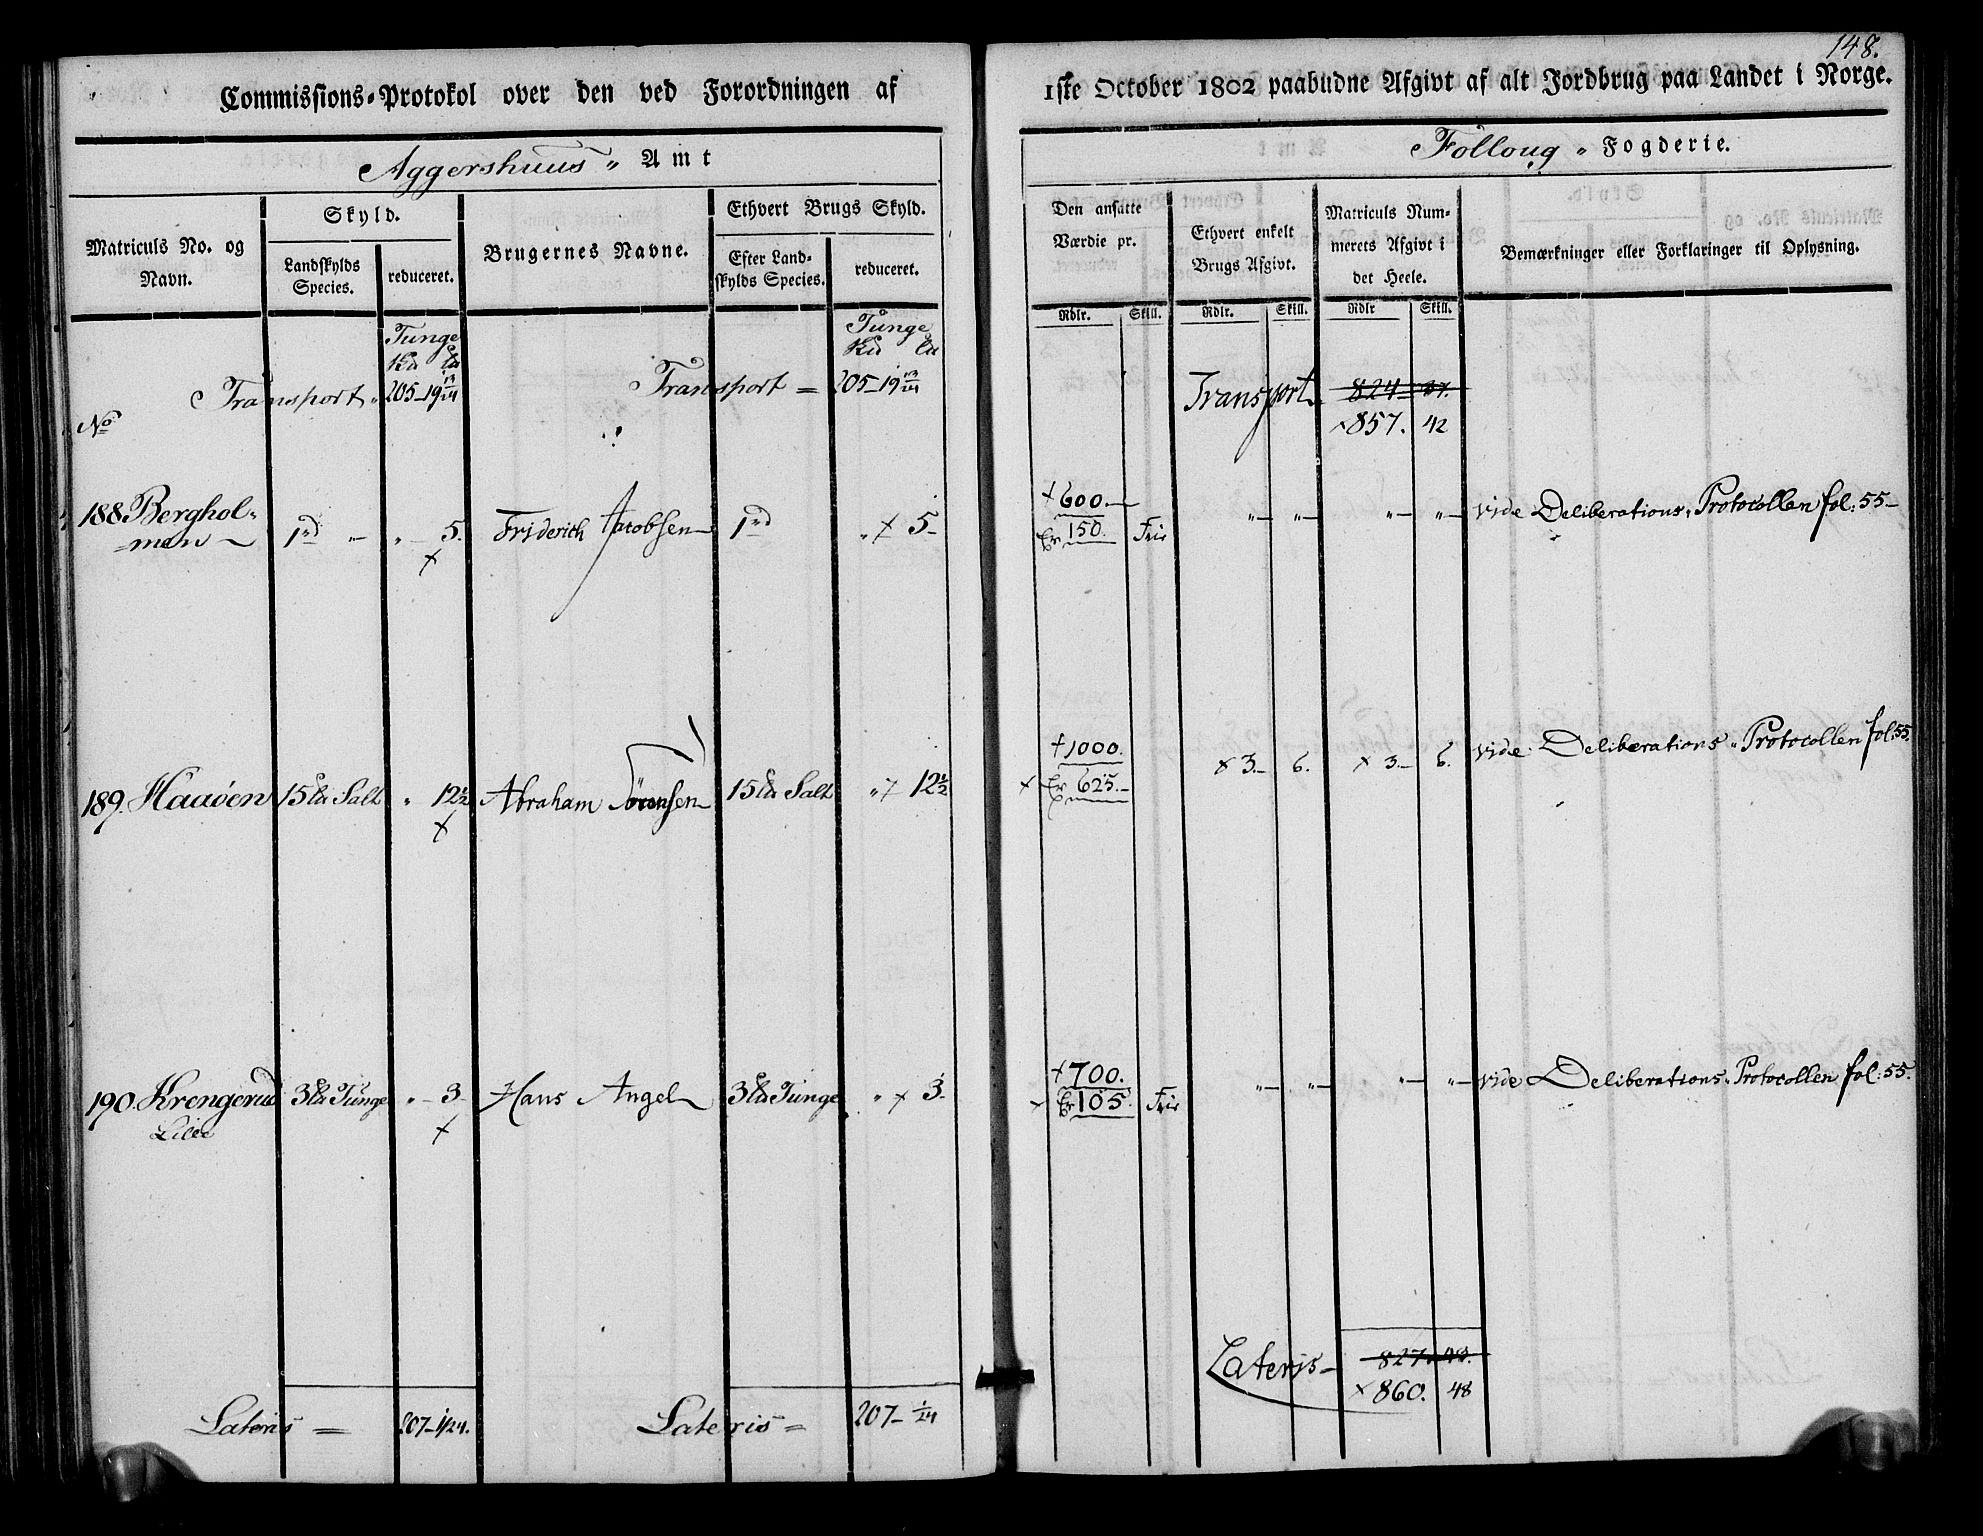 148.
Commissions-Protokol over den ved Forordningen af 1ste October 1802 paabudne Afgivt af alt Jordbrug paa Landet i Norge.
Aggershuus „ Amt
Follong „ Fogderie.
Matriculs No. og Navn.
Skyld.
Landskylds Species.
reduceret.
Brugernes Navne.
Ethvert Brugs Skyld.
Efter Landskylds Species.
reduceret.
Den ansatte Værdie pr.
Rdlr. Skill.
Ethvert enkelt Brugs Afgivt.
Rdlr. Skill.
Matriculs Nummerets Afgivt i det Heele.
Rdlr Skill.
Bemærkninger eller Forklaringer til Oplysning.
Tunge
Tunge
Transport „ 205-19 13/24 Transport = 205-19 13/24 Transport 824 37.
× 857. 42
No
188. Berghol-
men 1 rd „ „ - 5. Friderich Jacobsen 1 rd „ × 5 - + 600. Er 150. Frie „ „ „ „ vide Deliberations-Protocollen fol: 55-
189. Haaøen 15 Salt „ 12½ Abraham Sørensen 15 Salt „ × 12½ + 1000. × Er 625.- × 3.- 6. × 3.- 6. vide Deliberations-Protocollen fol: 55.
190. Krengerud
Lille 3 Tunge „ - 3 Hans Angel 3 Tunge „ × 3. + 700. Er 105. Frie „ „ „ „ vide Deliberations-Protocollen fol: 55.
Lateris - 827. 43.
× 860. 48
Lateris = 207-1/24. Lateris = 207-1/24